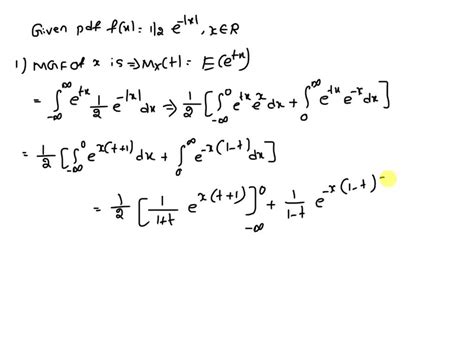 Given pdf f(x) = 1/2 e^{-|x|}, x∈R
1) MGF of x is ⇒ M_X(t) = E(e^{tx})
= ∫_{-∞}^{∞} e^{tx} 1/2 e^{-|x|} dx ⇒ 1/2 [∫_{-∞}^{0} e^{tx} e^{x} dx + ∫_{0}^{∞} e^{tx} e^{-x} dx]
= 1/2 [∫_{-∞}^{0} e^{x(t+1)} dx + ∫_{0}^{∞} e^{-x(1-t)} dx]
= 1/2 [1/(1+t) e^{x(t+1)}]_{-∞}^{0} + 1/(1-t) e^{-x(1-t)}